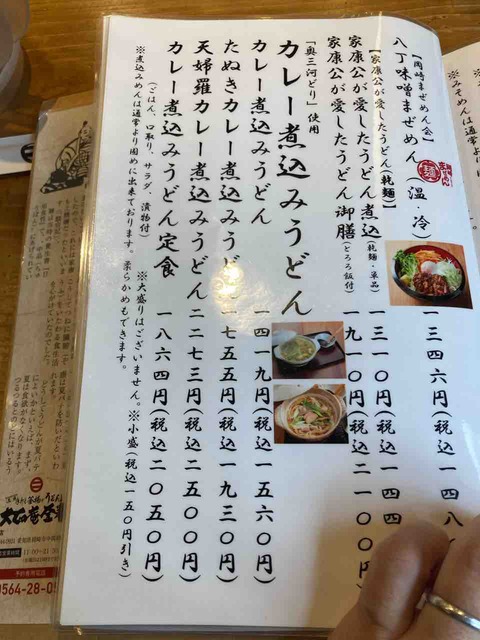 【岡崎まぜめん会】
八丁味噌まぜめん 温 冷 一三四六円(税込一四八
【家康公が愛したうどん(乾麺)】
家康公が愛したうどん煮込(乾麺・単品) 一三一〇円(税込一四四
家康公が愛したうどん御膳(とろろ飯付) 一九一〇円(税込二一〇〇円)
「奥三河どり」使用
カレー煮込みうどん
カレー煮込みうどん 一四一九円(税込一五六〇円)
たぬきカレー煮込みうどん 一七五五円(税込一九三〇円)
天婦羅カレー煮込みうどん 二二七三円(税込二五〇〇円)
カレー煮込みうどん定食 一八六四円(税込二〇五〇円)
(ごはん、口取り、サラダ、漬物付) ※大盛りはございません。※小盛(税込一五〇円引き)
※煮込みめんは通常より固めに出来ております。柔らかめもできます。
11:00~21:30
予約専用電話
0564-28-05